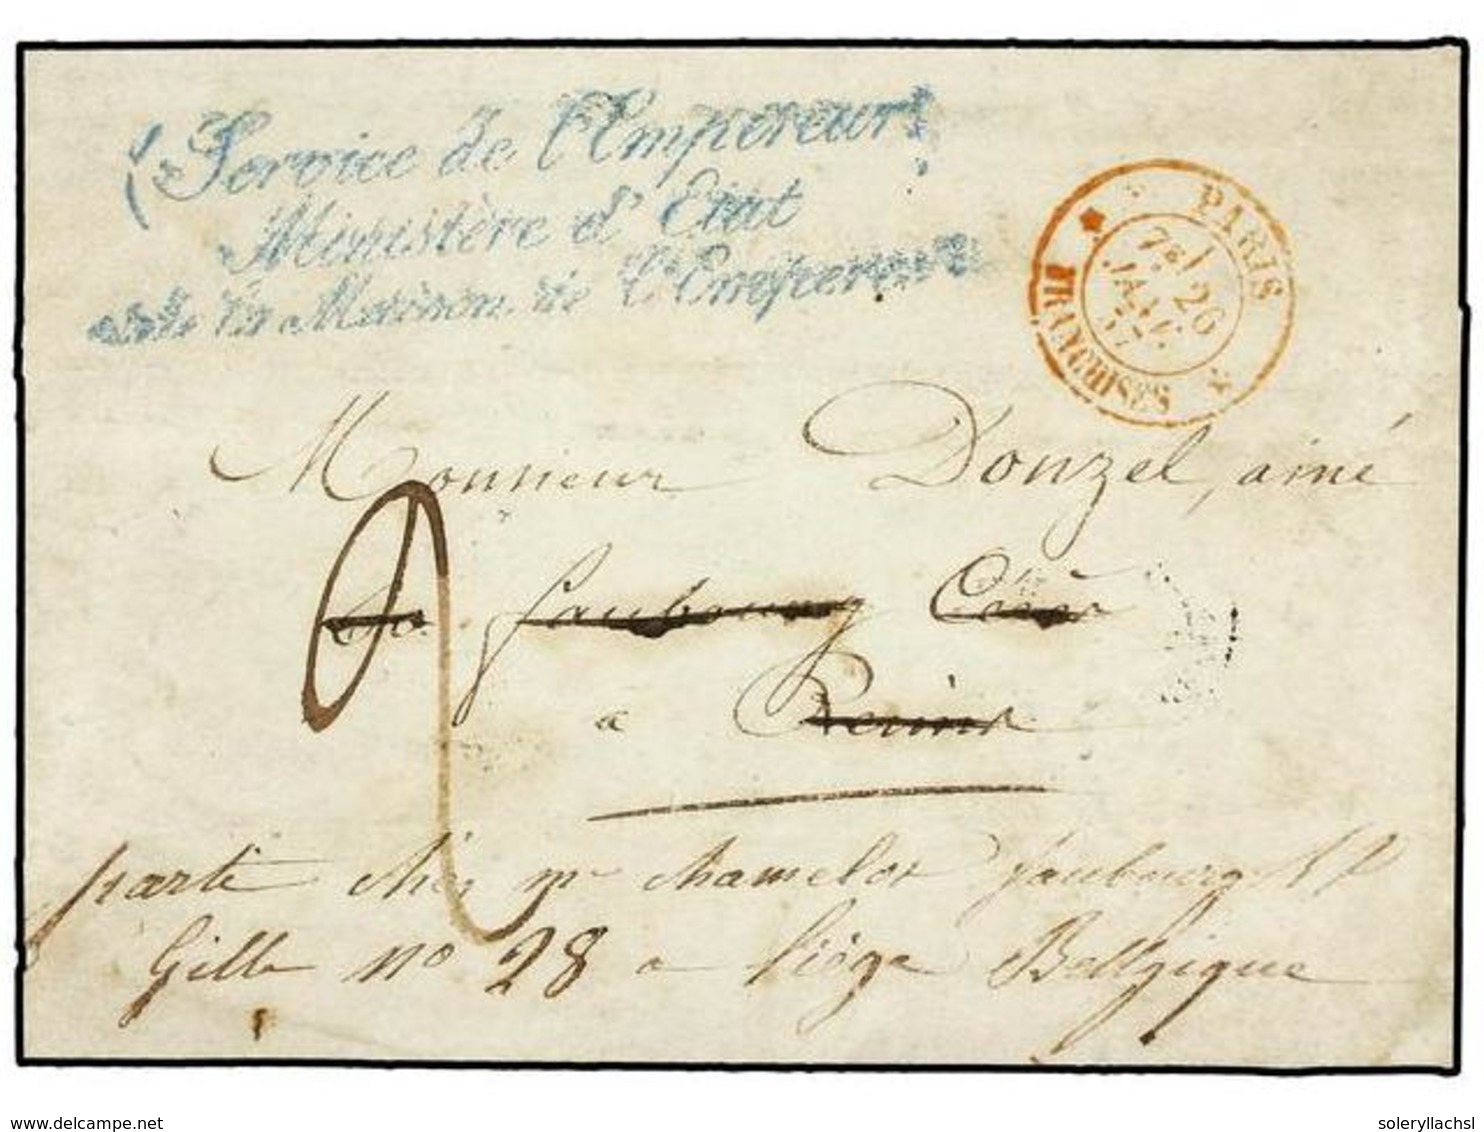 (Service de l'Empereur
Ministère d'Etat
de la Maison de l'Empereur
PARIS
7E
26
JANV.
57
FRANCHISES
Monsieur Donzel, ainé
faubourg Cérès
a Reims
2
parti chez mr Chamelot faubourg St
Gille no 28 a Liége Bellgique
www.delcampe.net
soleryllachsl